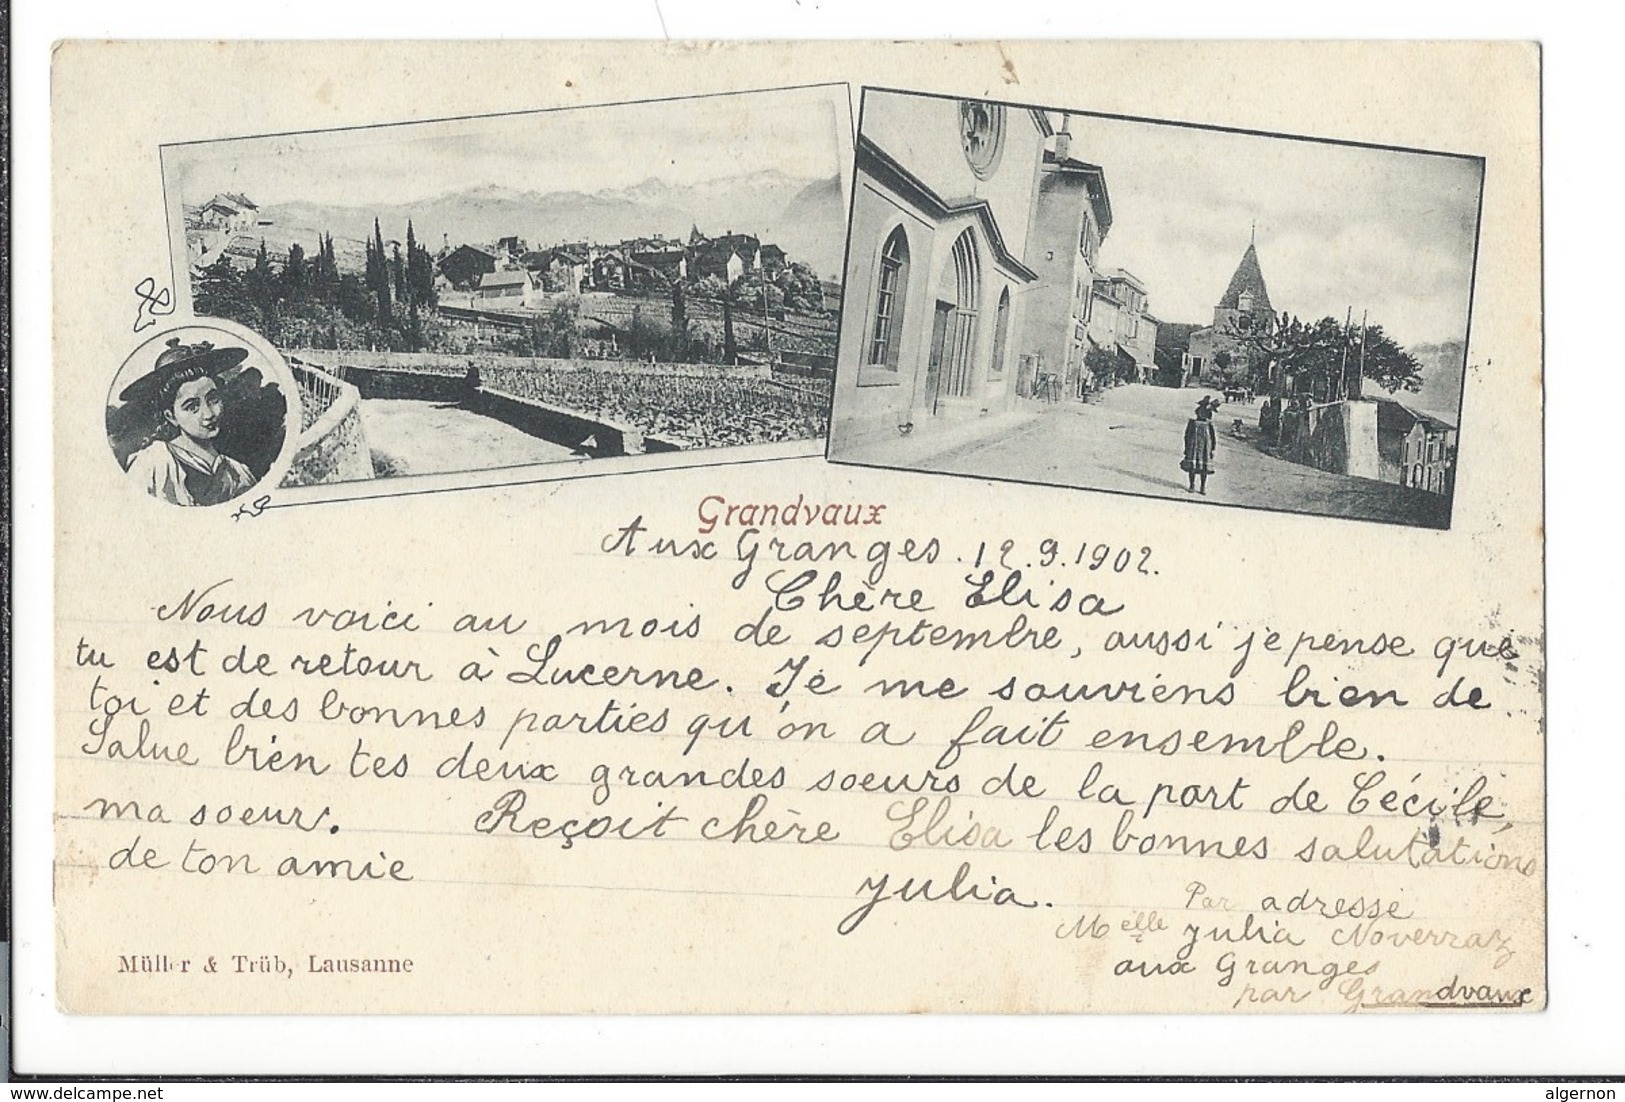 Grandvaux
Aux Granges. 12.9.1902.
Chère Elisa
Nous voici au mois de septembre, aussi je pense que
tu est de retour à Lucerne. Je me souviens bien de
toi et des bonnes parties qu'on a fait ensemble.
Salue bien tes deux grandes soeurs de la part de Cécile,
ma soeur. Reçoit chère Elisa les bonnes salutations
de ton amie
Julia.
Par adresse
Meille Julia Noverraz
aux Granges
par Grandvaux
Müller & Trüb, Lausanne
delcampe.net
algernon